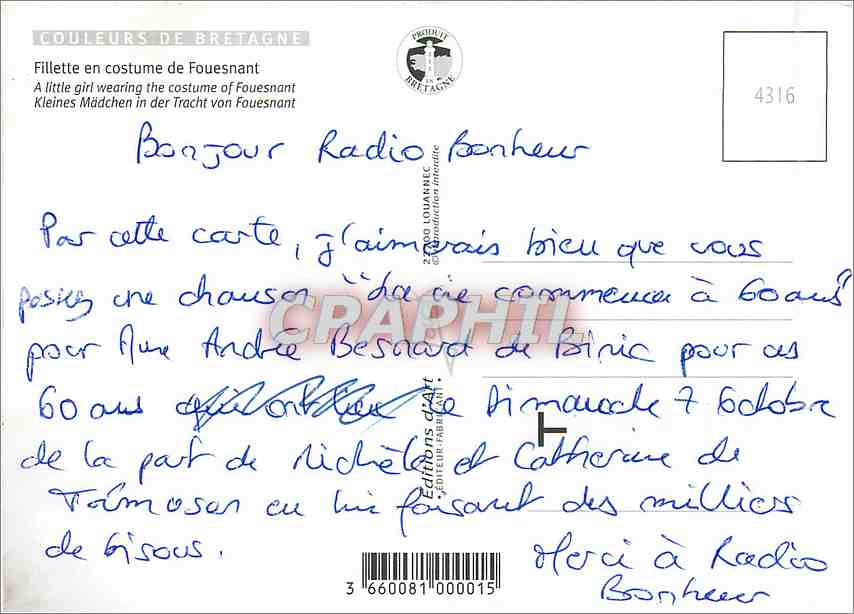 COULEURS DE BRETAGNE
Fillette en costume de Fouesnant
A little girl wearing the costume of Fouesnant
Kleines Mädchen in der Tracht von Fouesnant
PRODUIT EN BRETAGNE
4316
Bonjour Radio Bonheur
Par cette carte, j'aimerais bien que vous
passiez une chanson "La vie commence à 60 ans"
pour Mme Andrée Besnard de Binic pour ces
60 ans le Dimanche 7 Octobre
de la part de Michèle et Catherine de
Trémoson en lui faisant des milliers
de bisous.
Merci à Radio
Bonheur
22700 LOUANNEC
© Reproduction interdite
Editions d'Art
ÉDITEUR-FABRICANT
CPAPHIL
3 660081 000015